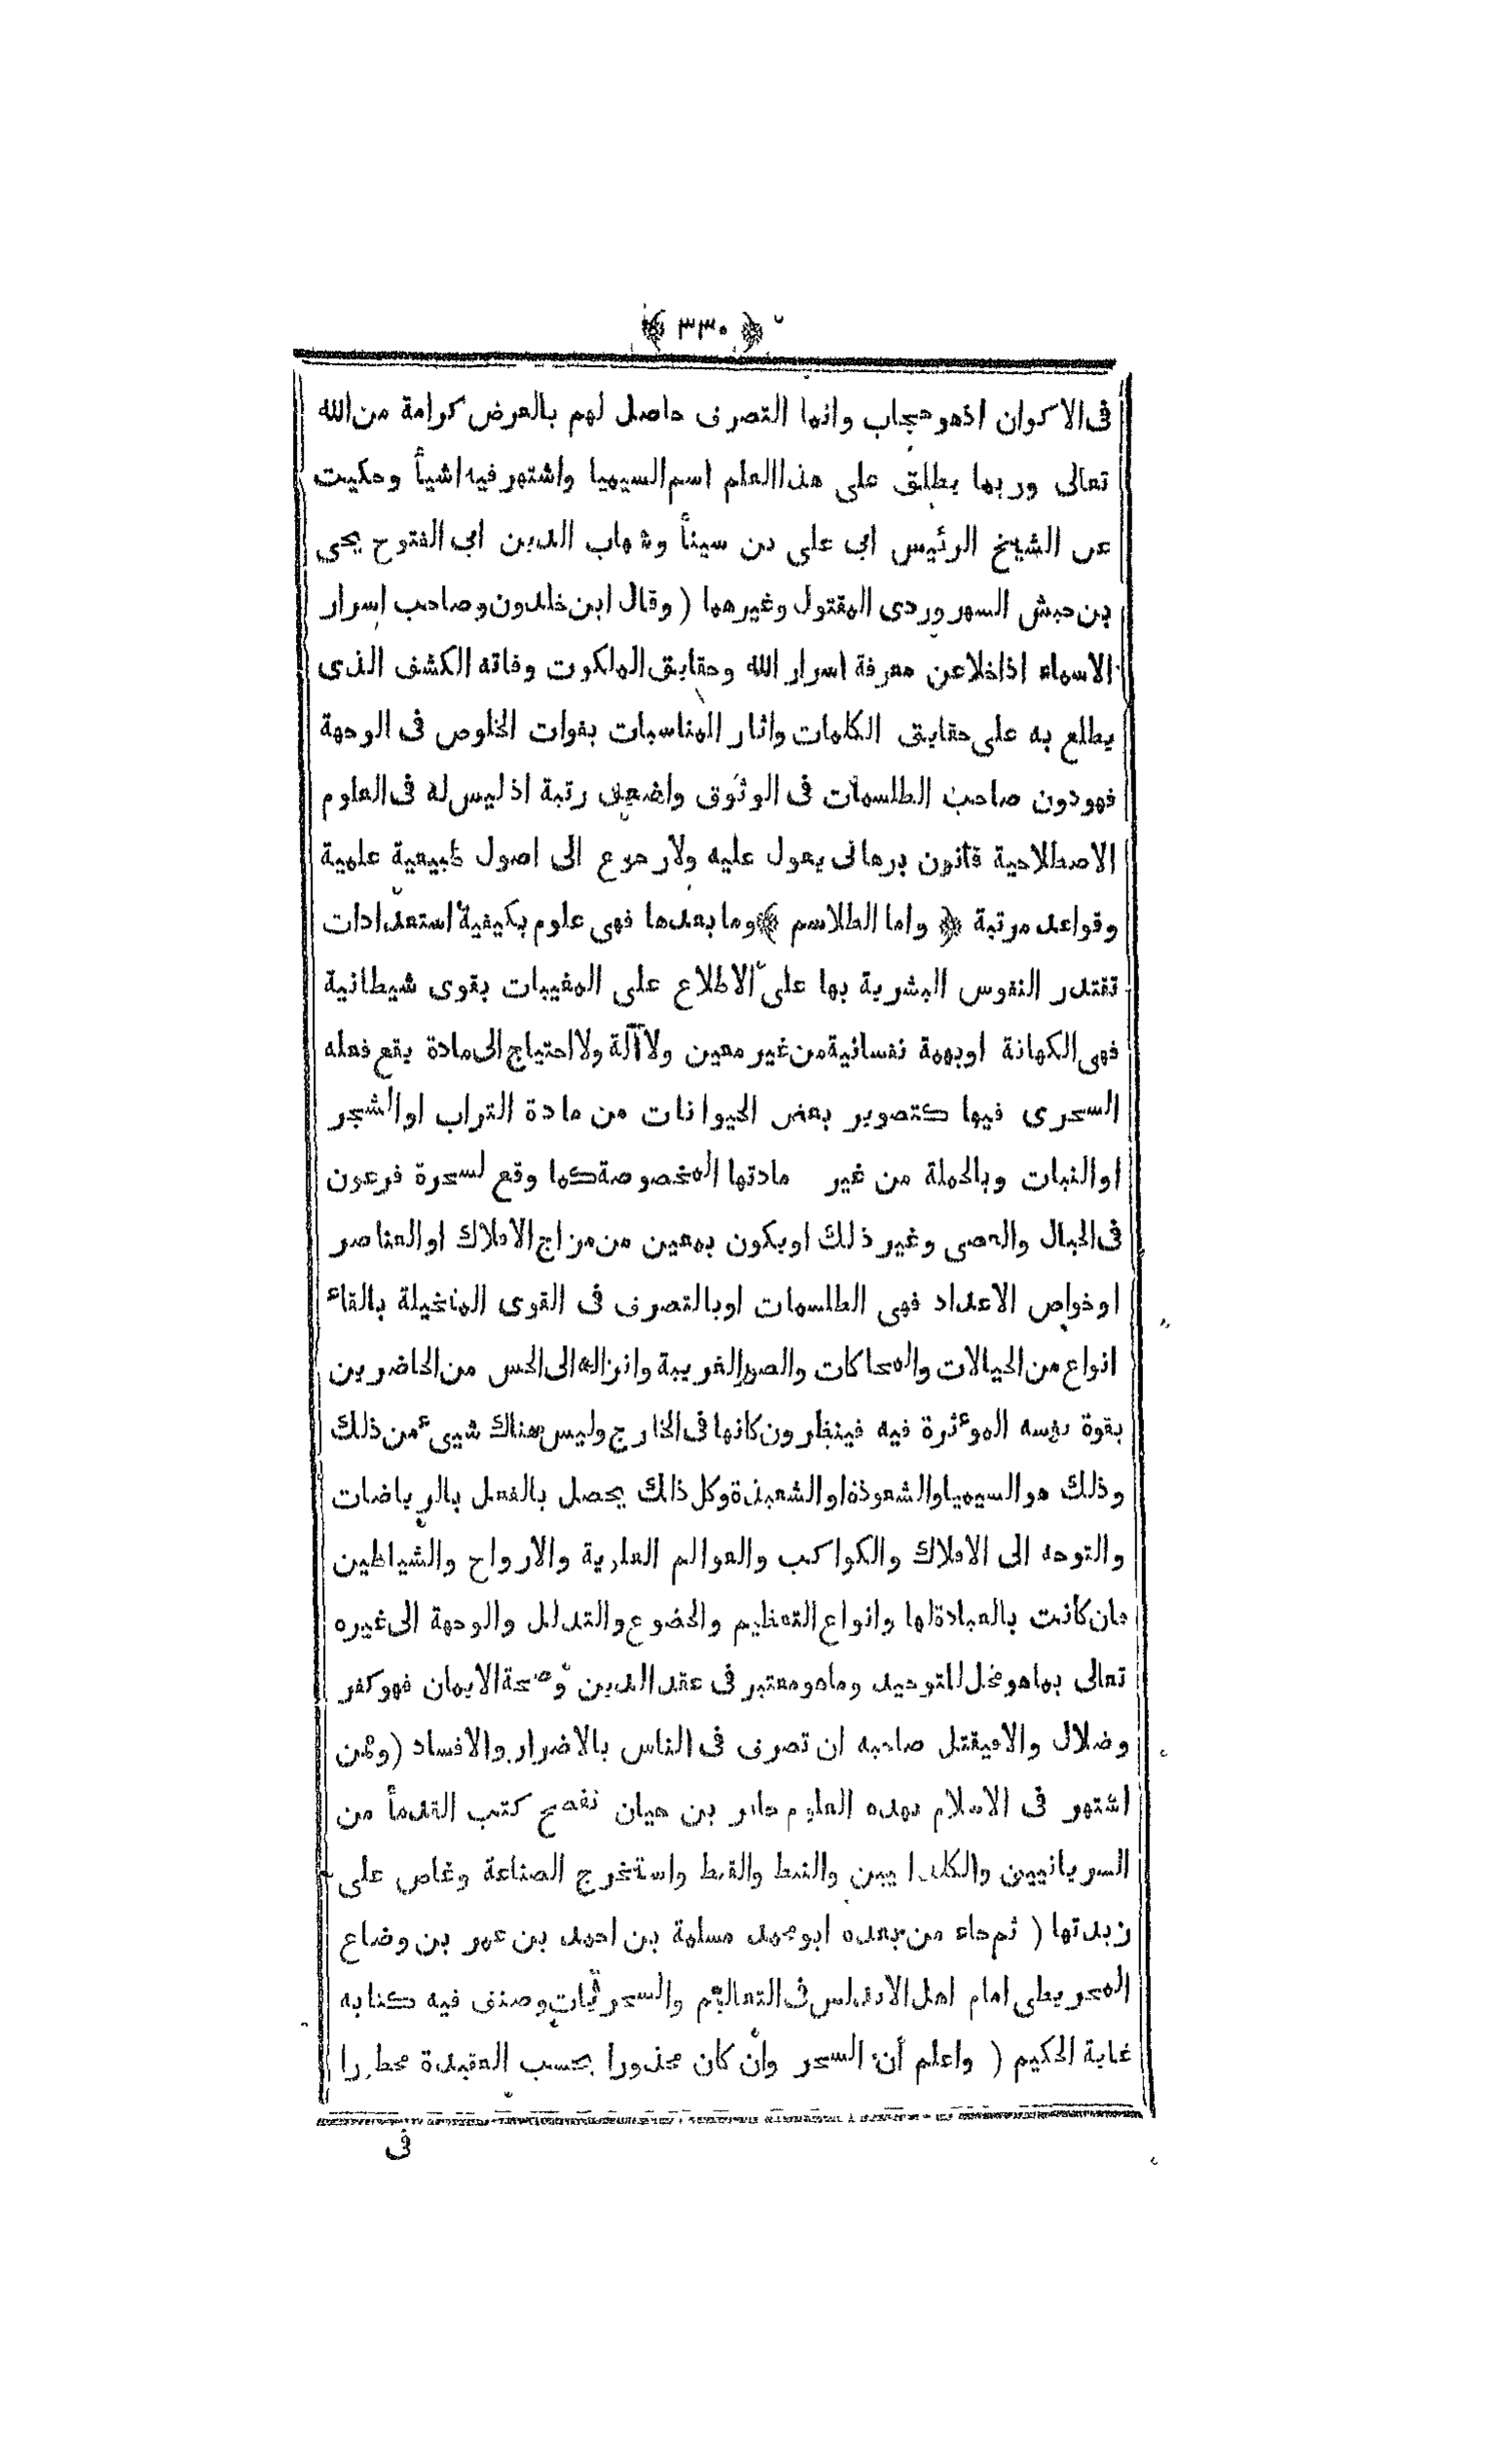 ﴿ ٣٣٠ ﴾
فى الاكوان اذهو حجاب وانما التصرف حاصل لهم بالعرض كرامة من الله
تعالى وربما يطلق على هذا العلم اسم السيميا واشتهر فيه اشيأ وحكيت
عن الشيخ الرئيس ابى على بن سينأ وشهاب الدين ابى الفتوح يحيى
بن حبش السهروردى المقتول وغيرهما ( وقال ابن خلدون وصاحب اسرار
الاسماء اذا خلا عن معرفة اسرار الله وحقايق الملكوت وفاته الكشف الذى
يطلع به على حقايق الكلمات واثار المناسبات بفوات الخلوص فى الوجهة
فهو دون صاحب الطلسمات فى الوثوق واضعف رتبة اذ ليس له فى العلوم
الاصطلاحية قانون برهانى يعول عليه ولا رجوع الى اصول طبيعية علمية
وقواعد مرتبة ﴿ واما الطلاسم ﴾ وما بعدها فهى علوم بكيفية استعدادات
تقتدر النفوس البشرية بها على الاطلاع على المغيبات بقوى شيطانية
فهى الكهانة او بهمة نفسانية من غير معين ولا آلة ولا احتياج الى مادة يقع فعله
السحرى فيها كتصوير بعض الحيوانات من مادة التراب او الشجر
او النبات وبالجملة من غير مادتها المخصوصة كما وقع لسحرة فرعون
فى الحبال والعصى وغير ذلك او يكون بمعين من مزاج الافلاك او العناصر
او خواص الاعداد فهى الطلسمات او بالتصرف فى القوى المتخيلة بالقاء
انواع من الخيالات والمحاكات والصور الغريبة وانزاله الى الحس من الحاضرين
بقوة نفسه الموءثرة فيه فينظرون كانها فى الخارج وليس هناك شيىء من ذلك
وذلك هو السيميا والشعوذة او الشعبذة وكل ذلك يحصل بالفعل بالرياضات
والتوجه الى الافلاك والكواكب والعوالم العلوية والارواح والشياطين
فان كانت بالعبادة لها وانواع التعظيم والخضوع والتدلل والوجهة الى غيره
تعالى بما هو مخل للتوحيد وما هو معتبر فى عقد الدين وصحة الايمان فهو كفر
وضلال والا فيقتل صاحبه ان تصرف فى الناس بالاضرار والافساد ( وممن
اشتهر فى الاسلام بهده العلوم جابر بن حيان تفصح كتب القدمأ من
السريانيين والكلدايين والنبط والقبط واستخرج الصناعة وغاص على
زبدتها ( ثم جاء من بعده ابو محمد مسلمة بن احمد بن عمر بن وضاع
المجريطى امام اهل الاندلس فى التعاليم والسحريات وصنف فيه كتابه
غاية الحكيم ( واعلم أن السحر وان كان محذورا بحسب العقيدة محظورا
فى